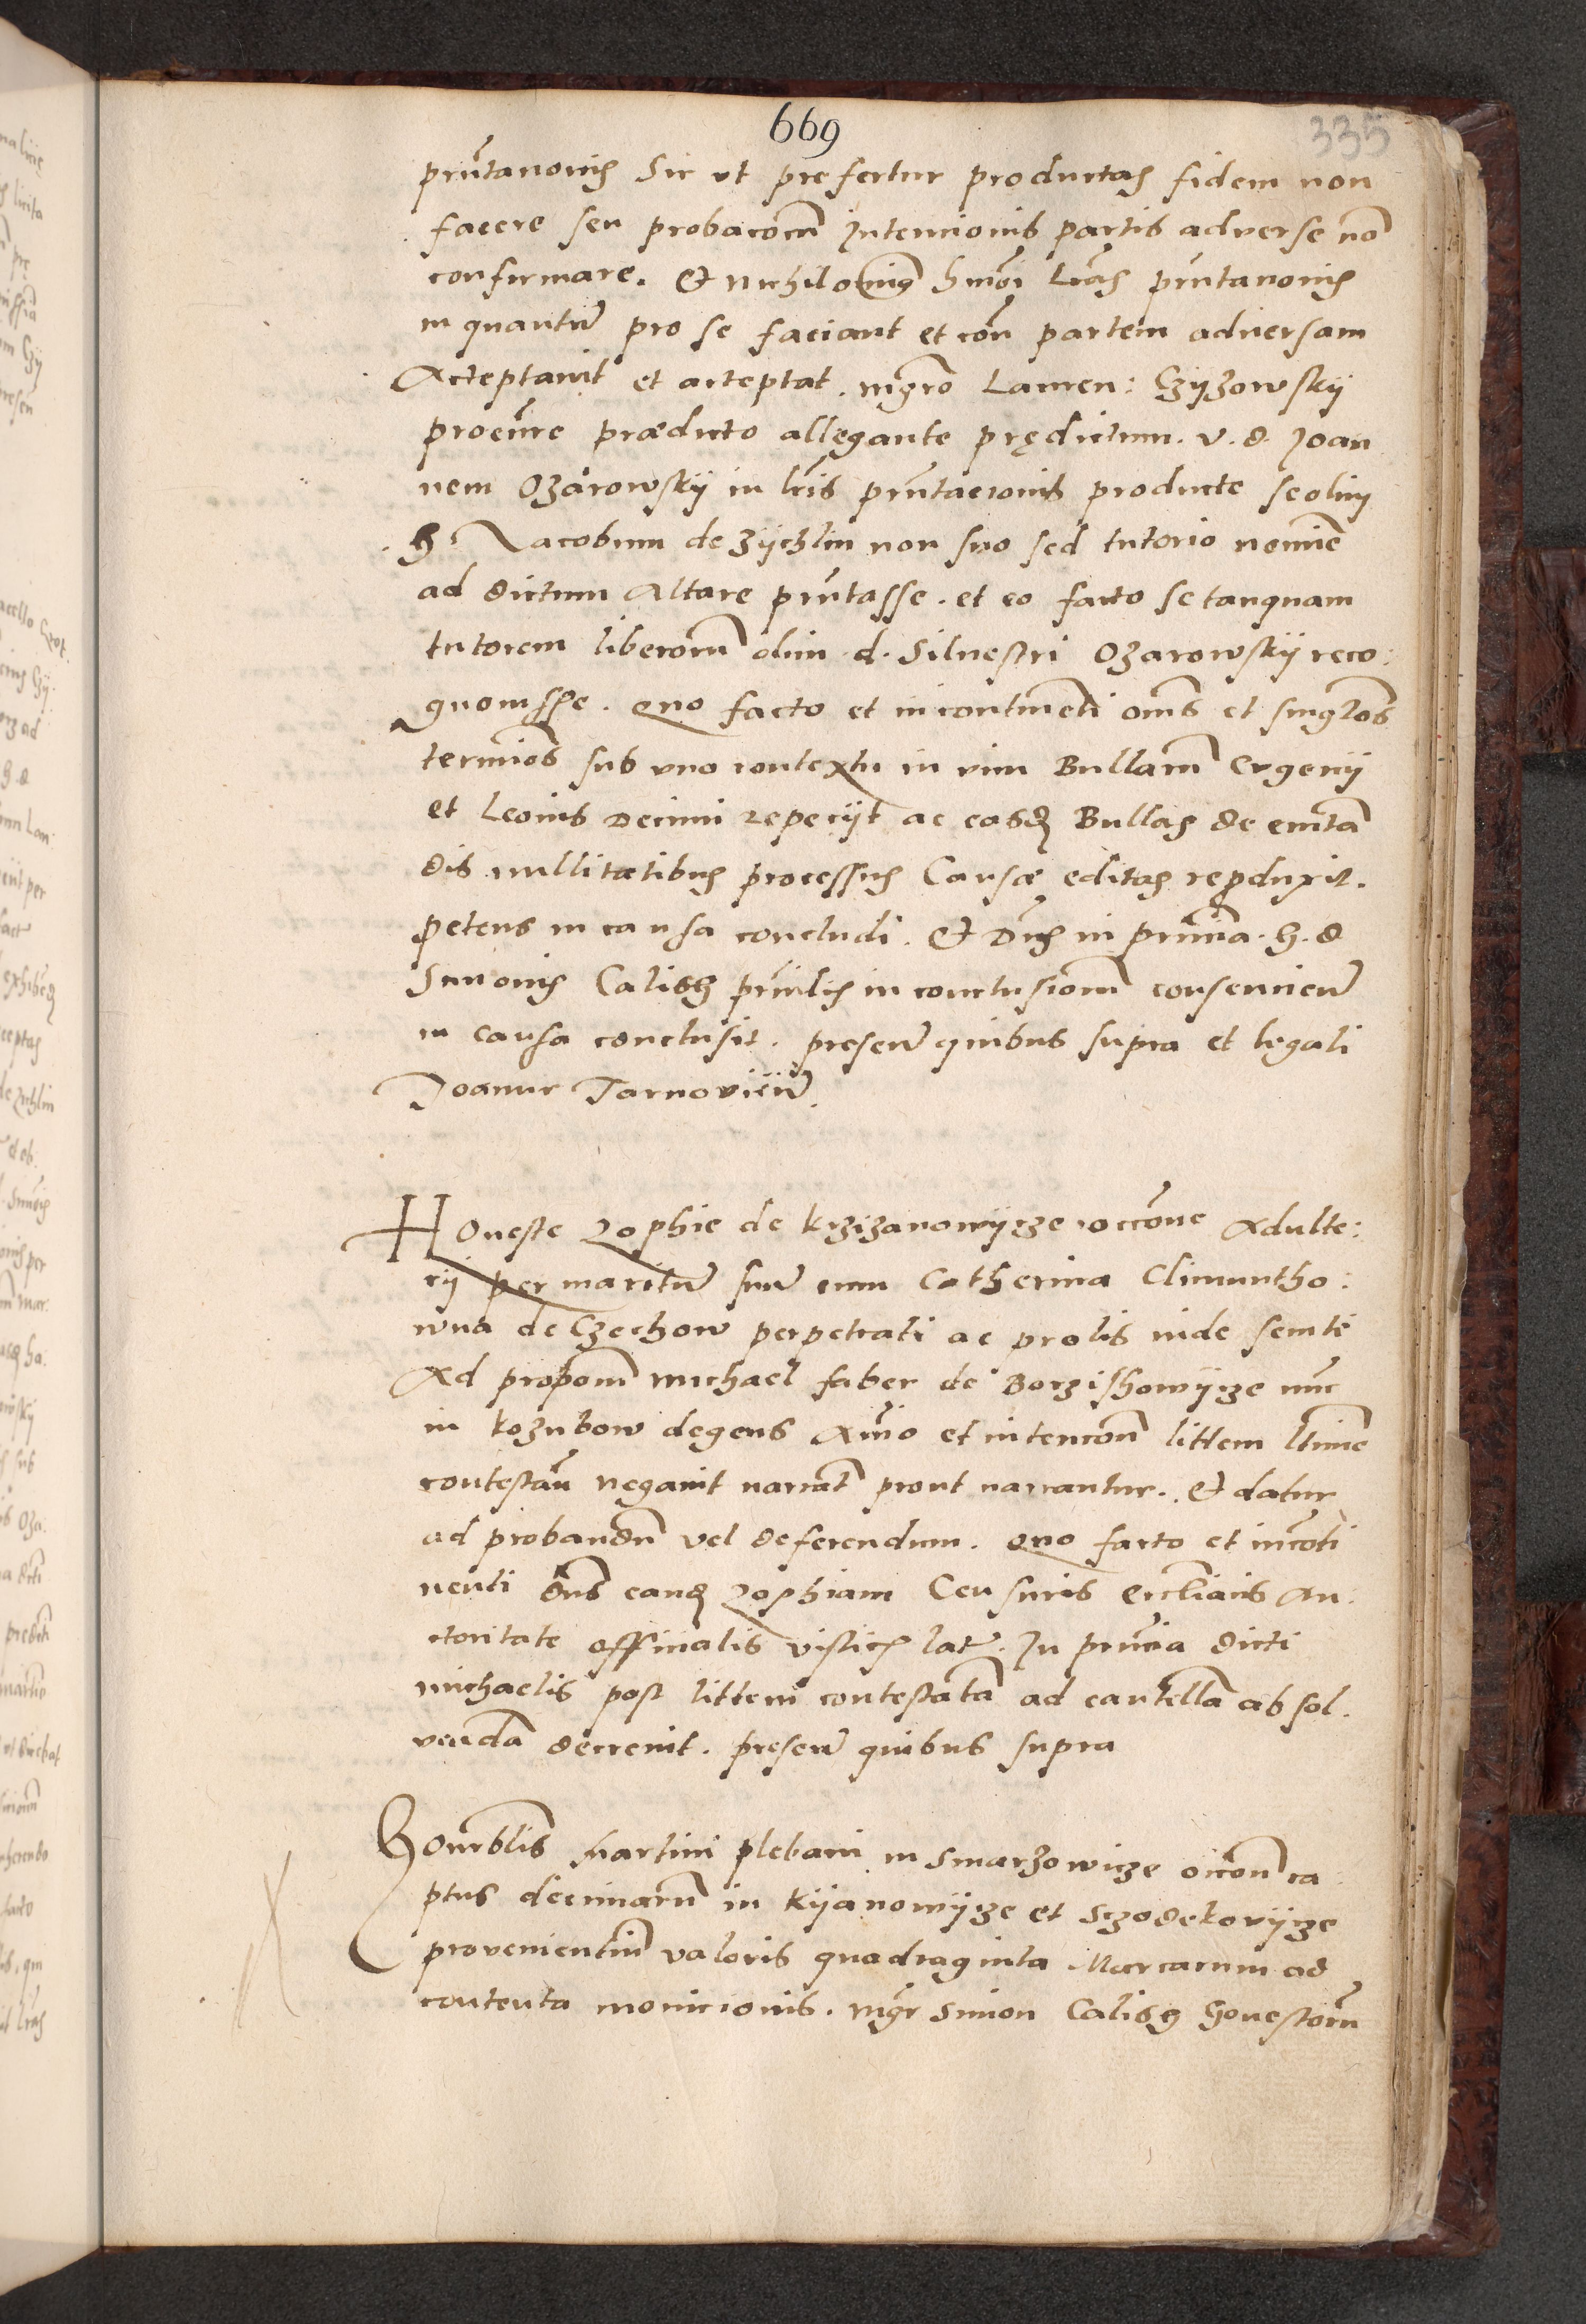 669
335
pñtacionis Sic vt prefertur productas fidem non
facere seu probacōem Intencionis partis aduerse nō
confirmare. Et nichilominꝰ hmōi Lrās pñtacionis
in quantū pro se faciant et cōn partem aduersam
Acceptauit et acceptat. mgrō Lauren: Czyzowskij
procūre prædicto allegante prędictum. v. d. Joan
nem Ozarowskij in lrīs pñtacionis producte se olim
h. Jacobum de zijchlin non suo sed tutorio nomīe
ad dictum Altare pñtasse. et eo facto se tanquam
tutorem liberorū olim d. Siluestri Ozarowskij reco:
gnouisse. Quo facto et in continēti om̄s et singlōs
termiōs sub vno contextu in vim Bullarū Eugenij
et Leonis Decimi reperijt ac easdꝫ Bullas de euitā
dis nullitatibus processus Causæ editas reproduxit.
petens in causa concludi. Et Dn̄s in pñtia. h. d
Simonis Calisz prīncipalis in conclusionē consencien̄
in causa conclusit. presen̄ quibus supra et legali
Joanne Tarnovicen̄.
Honeste Zophie de krzizanowijcze occōne Adulte:
rij per maritū suū cum Catherina Climuntho:
wna de Czechow perpetrati ac prolis inde semte
Ad propōem Michael faber de Borzishowijcze nūc
in kozubow degens Aīo et intencōn littem ltīme
contestan̄ negauit narrāt prout narrantur. Et datur
ad probandū vel deferendum. Quo facto et incōti
nenti dn̄s eandꝫ Zophiam Censuris ecclīaīs Au:
ctoritate officialis vislicꝫ lat̄. In pñtia dicti
Michaelis post littem contestatā ad cautellā absol.
uendā decreuit. presen̄ quibus supra
Honrblīs Martini plebani in Smarzowicze occōn ca
ptus decimarū in kijanowijcze et Szodekovijcze
prouenientiū valoris quadraginta Marcarum ad
contenta monicionis. mgr̄ Simon Calisz honestorū